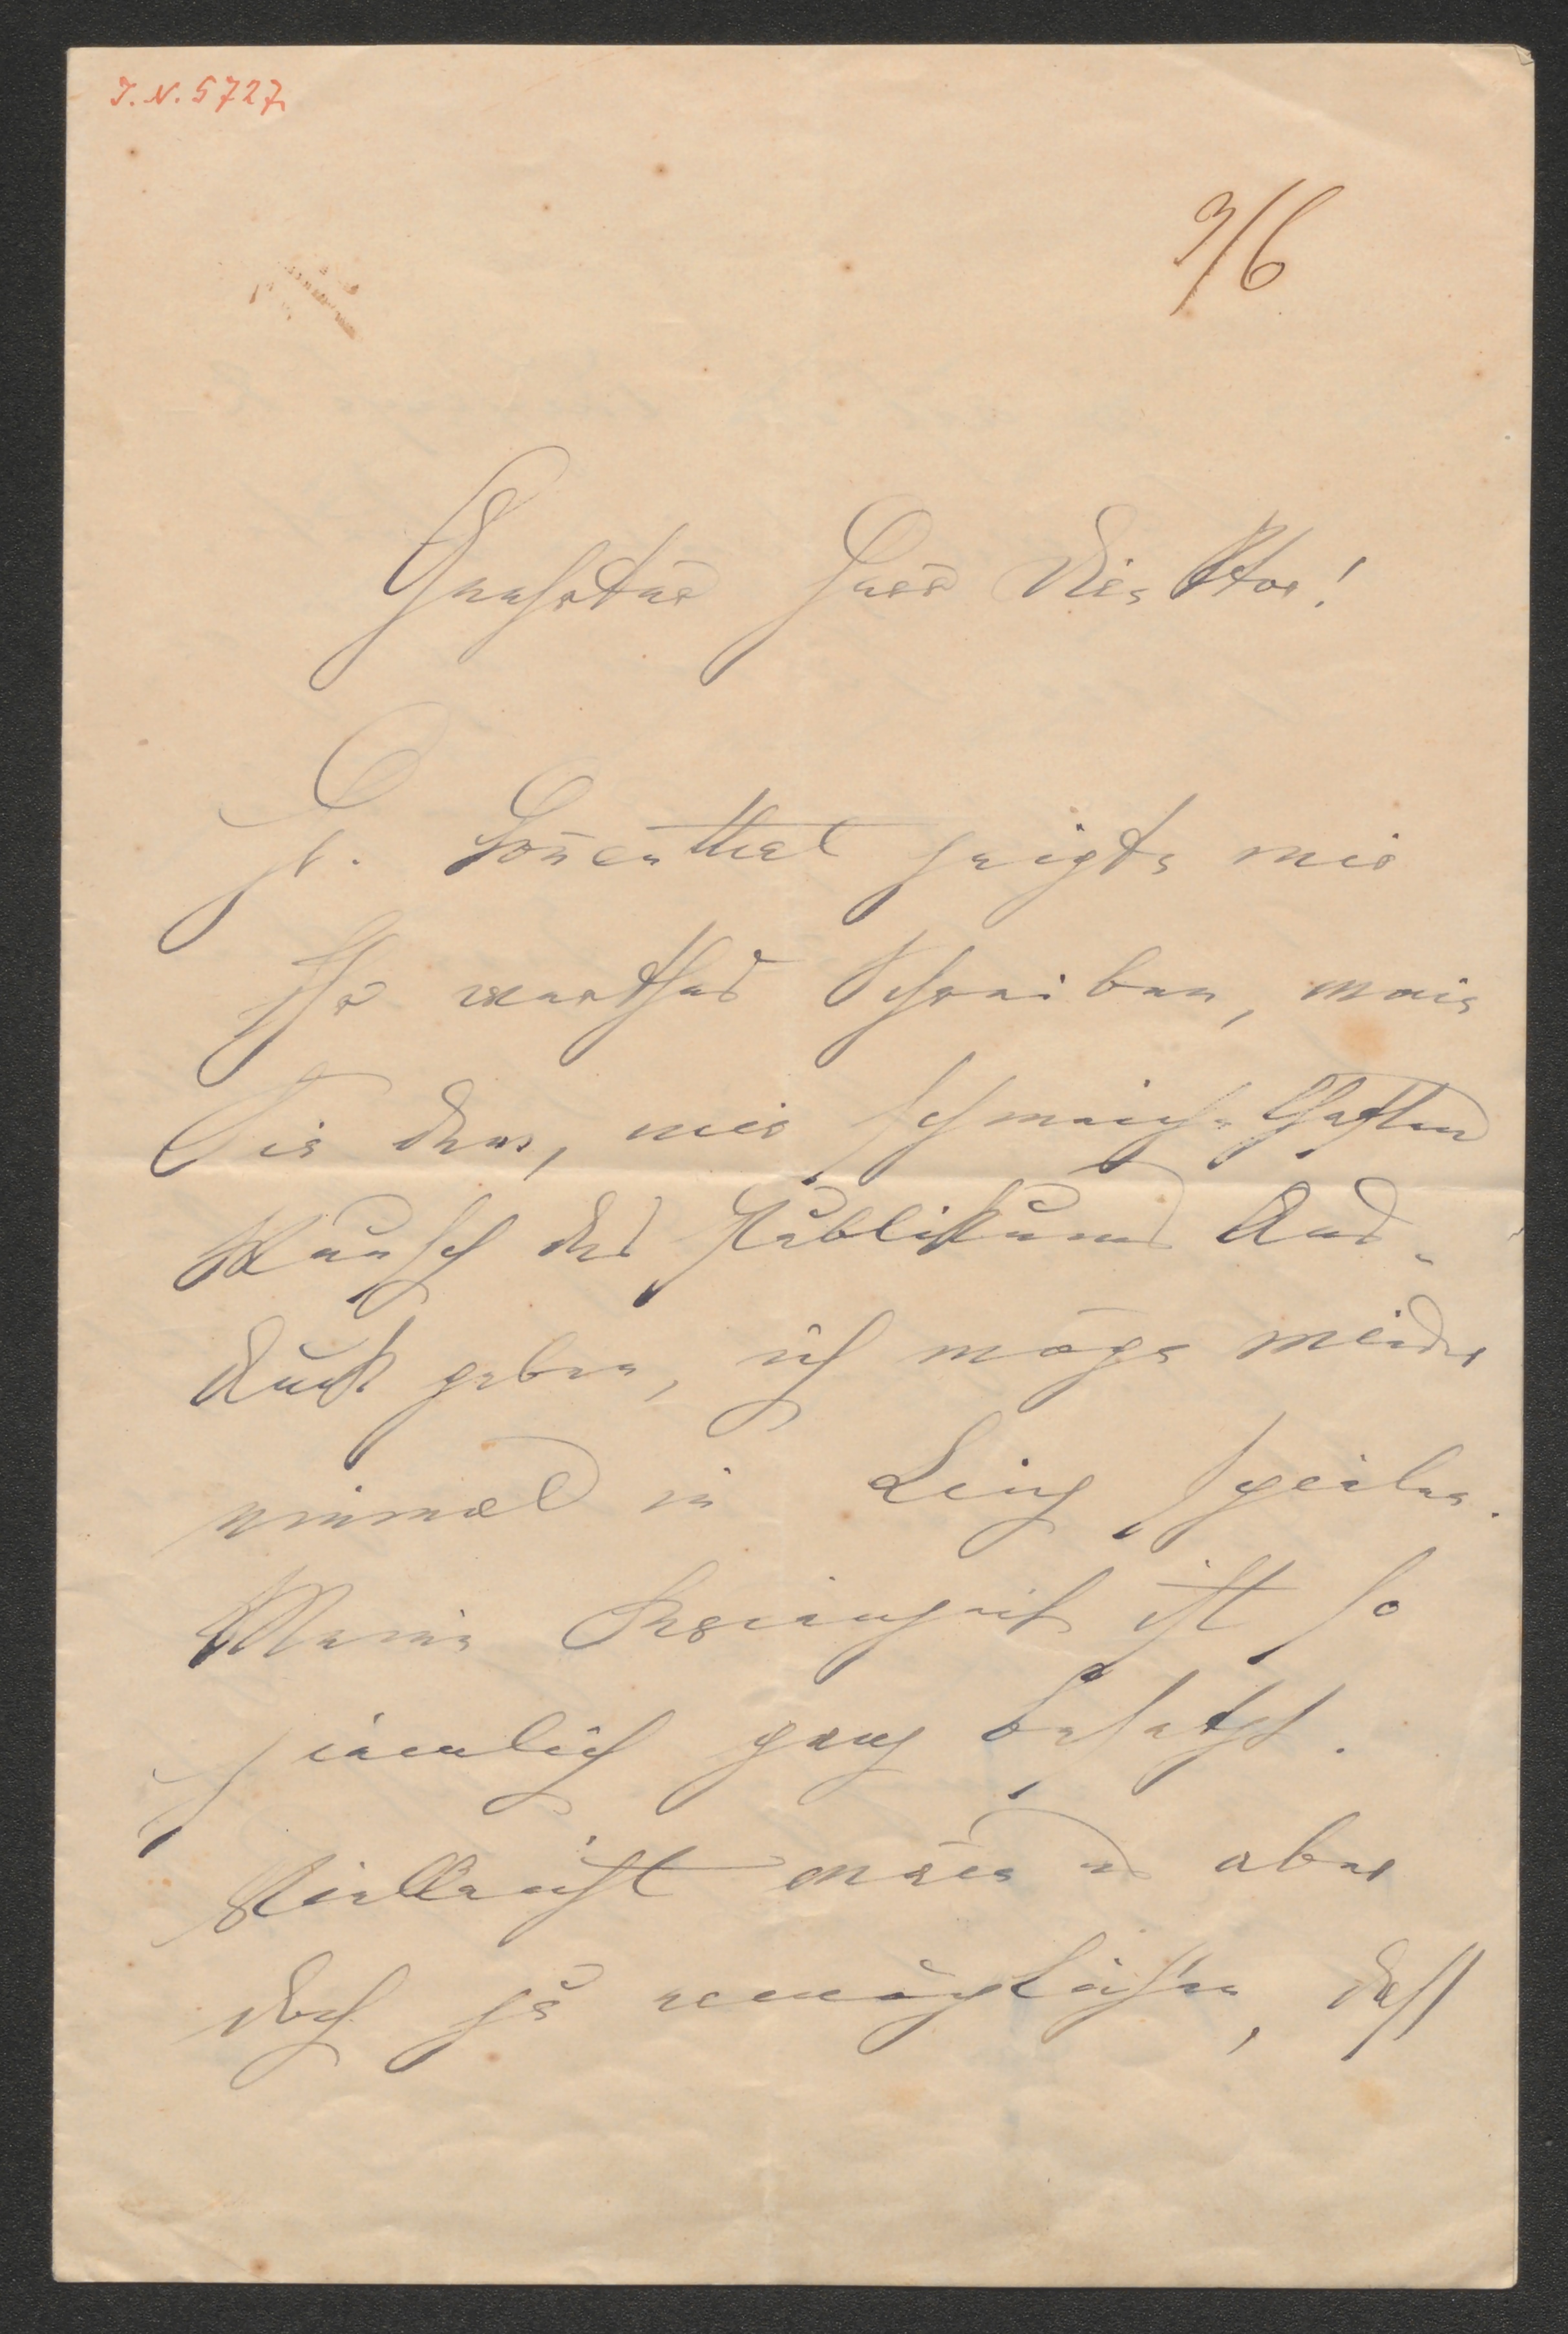 I.N. 5727
9/6
Geehrter Herr Direktor!
H. Sonenthal zeigte mir
Ihr werthes Schreiben,
Sie dem, mir schmeichelhaften
Wunsch des Publikums Aus-
druck geben, ich möge wieder
einmal in Linz spielen.
Meine Ferienzeit ist so
ziemlich ganz besetzt.
Vielleicht wäre es aber
doch zu ermöglichen, daß